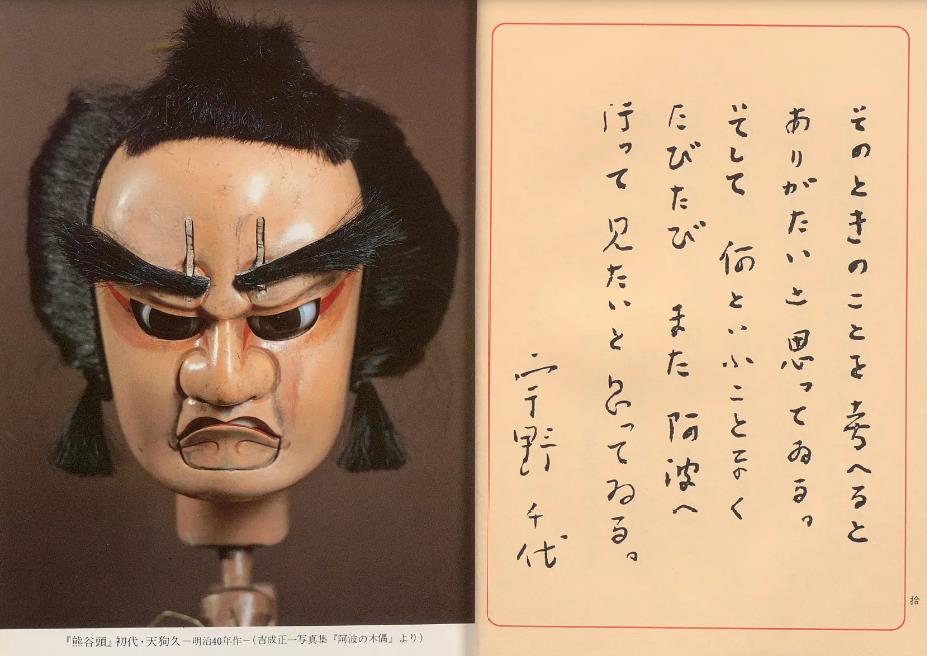 そのときのことを考へると
ありがたいと思ってゐる。
そして 何といふことなく
たびたび また 阿波へ
行って 見たいと 思ってゐる。
宇野千代
拾
『熊谷頭』初代・天狗久−明治40年作−(吉成正一写真集『阿波の木偶』より)